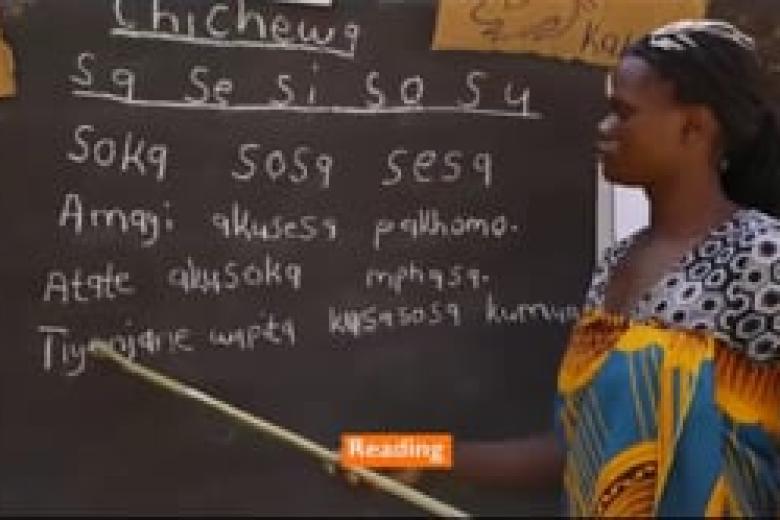 Chichewa
Sa Se Si So Su
Soka Sosa Sesa
Amayi akusesa pakhomo.
Atate akusoka mphasa.
Tiyanjane wapita kusasosa
Reading